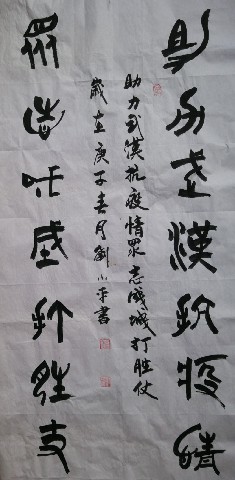 助力武漢抗疫情
眾志成城打胜仗
助力武漢抗疫情眾志成城打胜仗
歲在庚子春月劉小平書